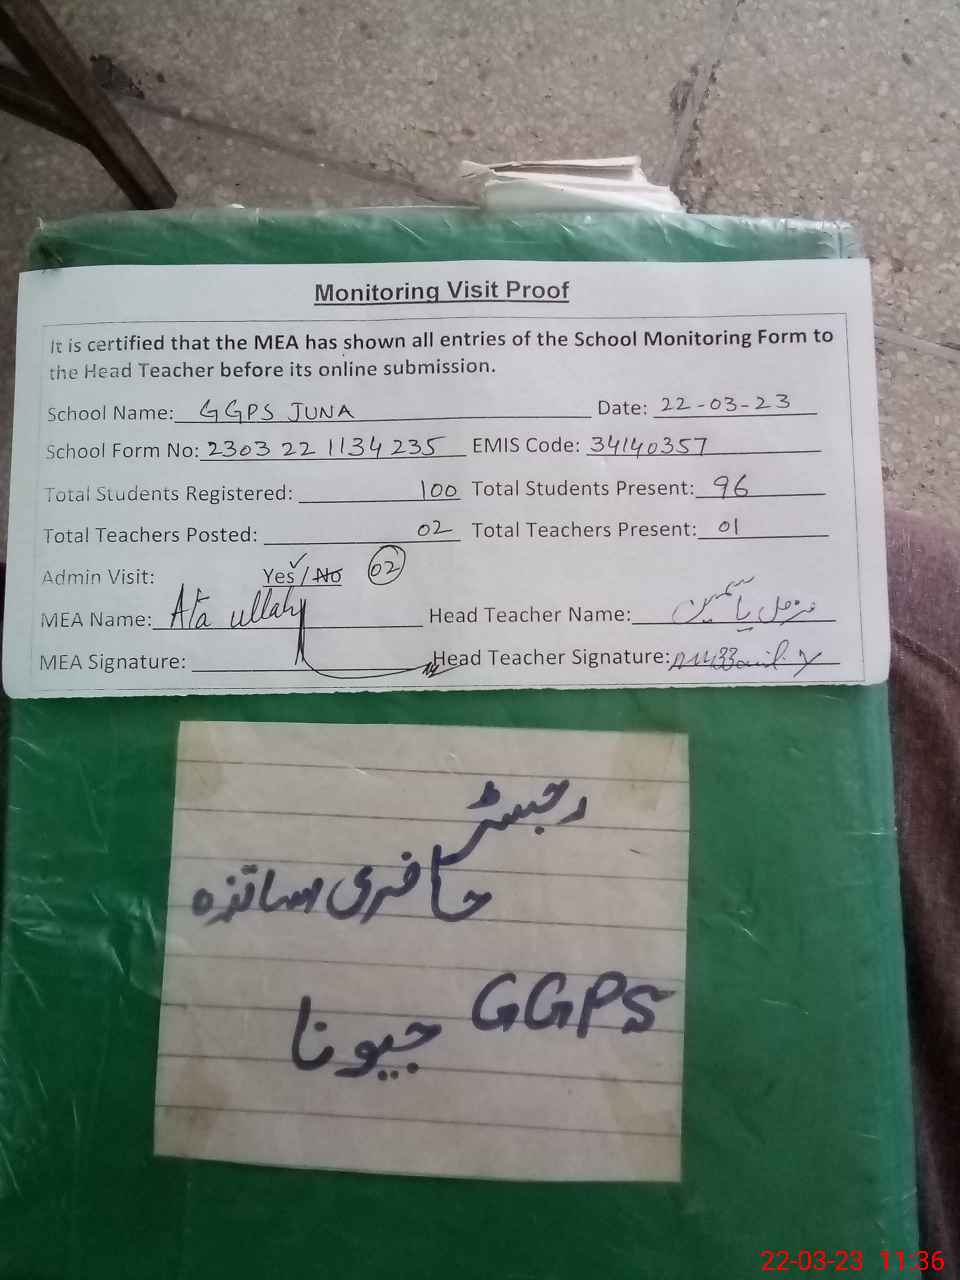 Monitoring Visit Proof
It is certified that the MEA has shown all entries of the School Monitoring Form to
the Head Teacher before its online submission.
School Name: GGPS JUNA Date: 22-03-23
School Form No: 2303 22 1134 235 EMIS Code: 34140357
Total Students Registered: 100 Total Students Present: 96
Total Teachers Posted: 02 Total Teachers Present: 01
Admin Visit: Yes / No 02
MEA Name: Ata ullah Head Teacher Name: مزمل یاسمین
MEA Signature: Head Teacher Signature: Muzzamil Y
رجسٹر
حاضری اساتذہ
GGPS جیونا
22-03-23 11:36